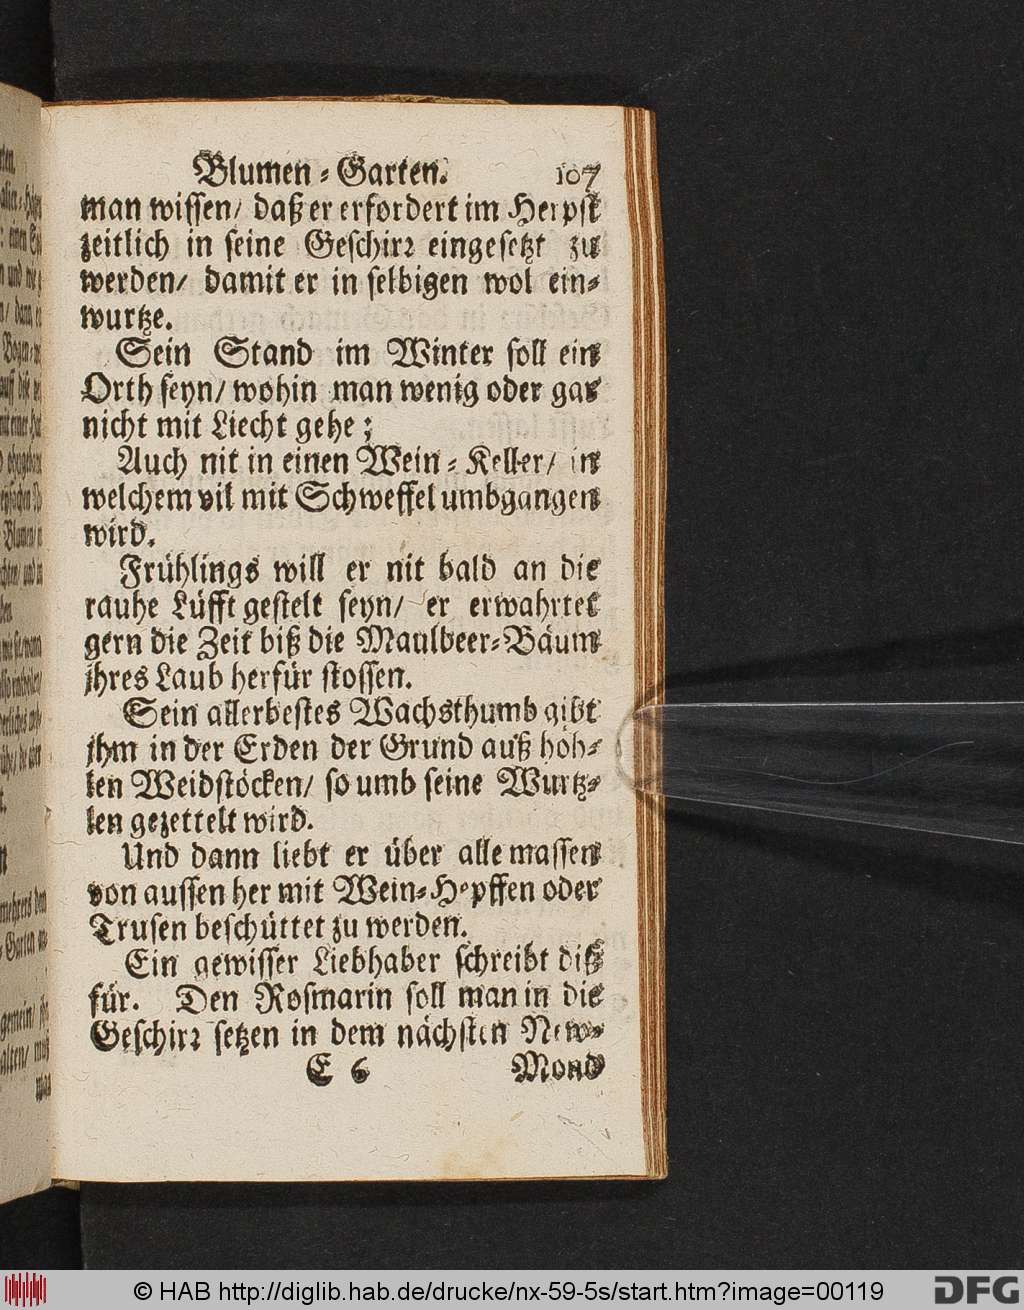 Blumen-Garten. 107
man wissen/ daß er erfordert im Herpst
zeitlich in seine Geschirr eingesetzt zu
werden/ damit er in selbigen wol ein-
wurtze.
Sein Stand im Winter soll ein
Orth seyn/ wohin man wenig oder gar
nicht mit Liecht gehe;
Auch nit in einen Wein-Keller/ in
welchem vil mit Schweffel umbgangen
wird.
Frühlings will er nit bald an die
rauhe Lüfft gestelt seyn/ er erwahrtet
gern die Zeit biß die Maulbeer-Bäum
ihres Laub herfür stossen.
Sein allerbestes Wachsthumb gibt
ihm in der Erden der Grund auß höh-
len Weidstöcken/ so umb seine Wurtz-
len gezettelt wird.
Und dann liebt er über alle massen
von aussen her mit Wein-Hepffen oder
Trusen beschüttet zu werden.
Ein gewisser Liebhaber schreibt diß
für. Den Rosmarin soll man in die
Geschirr setzen in dem nächsten New-
E 6 Mond
© HAB http://diglib.hab.de/drucke/nx-59-5s/start.htm?image=00119
DFG